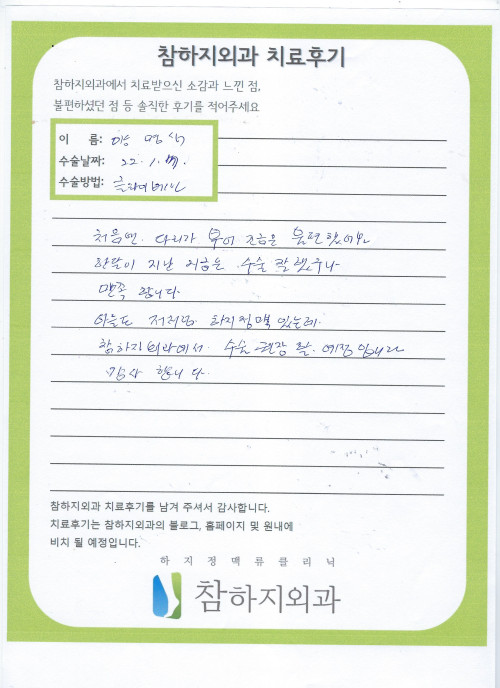 참하지외과 치료후기
참하지외과에서 치료받으신 소감과 느낀 점,
불편하셨던 점 등 솔직한 후기를 적어주세요
이 름:
수술날짜: 22. 1.
수술방법: 클라리베인
처음엔 다리가 부어 조금은 불편했어나
한달이 지난 지금은 수술 잘했구나
만족 합니다.
아들도 저처럼 하지정맥 있는데
참하지외과에서 수술 권장 할 예정입니다
감사 합니다.
참하지외과 치료후기를 남겨 주셔서 감사합니다.
치료후기는 참하지외과의 블로그, 홈페이지 및 원내에
비치 될 예정입니다.
하지정맥류클리닉
참하지외과